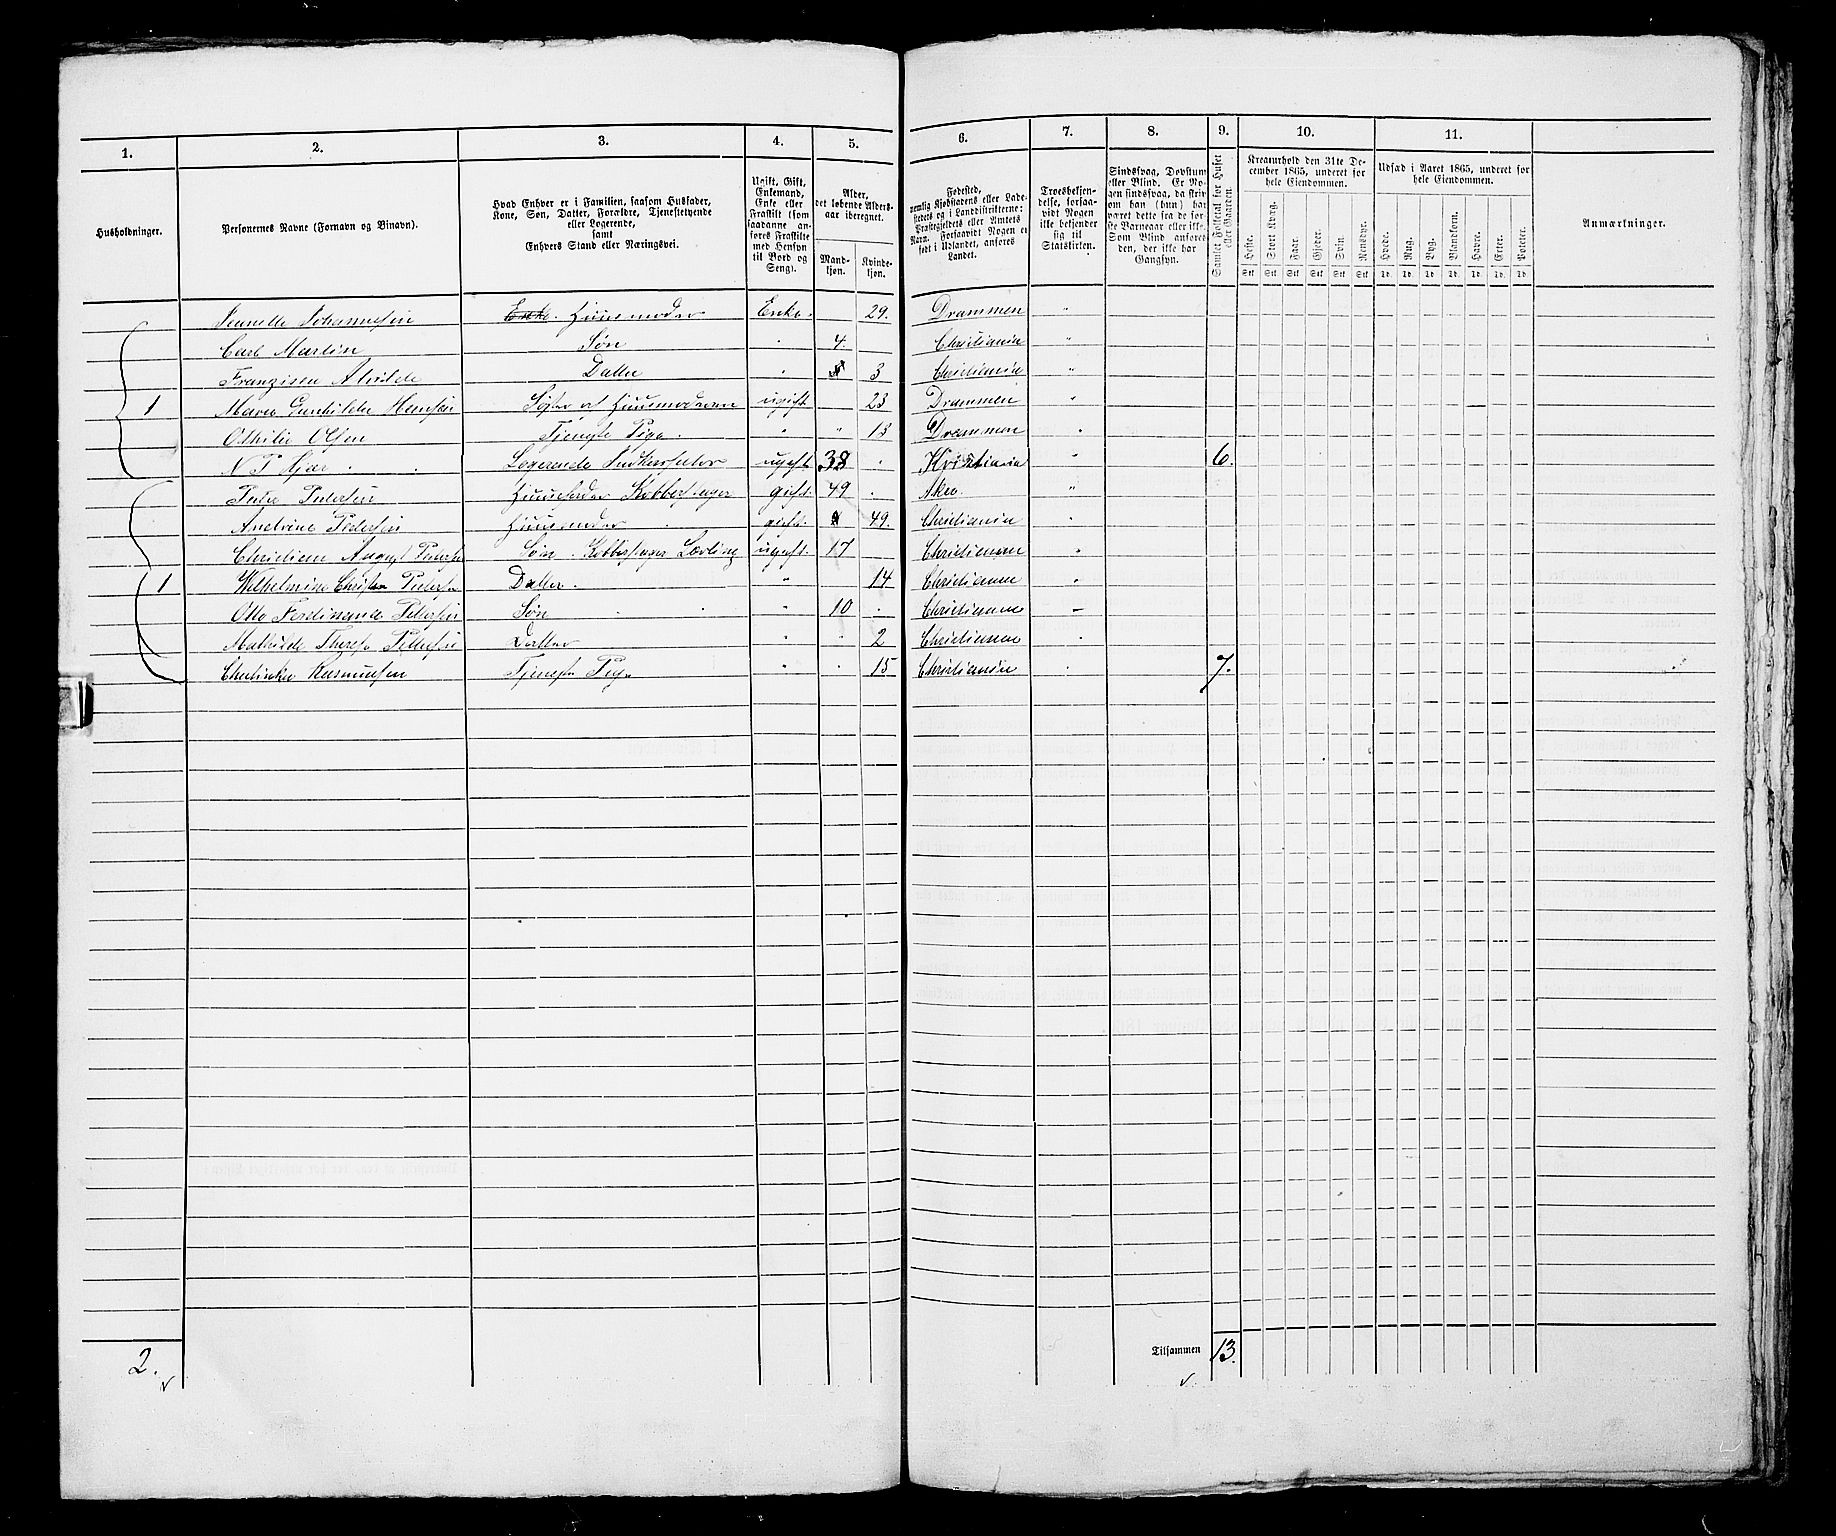 1. 2. 3. 4. 5. 6. 7. 8. 9. 10. 11.
Husholdninger.
Personernes Navne (Fornavn og Binavn).
Hvad Enhver er i Familien, saasom Husfader, Kone, Søn, Datter, Forældre, Tjenestetyende eller Logerende, samt Enhvers Stand eller Næringsvei.
Ugift, Gift, Enkemand, Enke eller Fraskilt (som saadanne anføres Fraskilte med Hensyn til Bord og Seng).
Alder, det løbende Alders-aar iberegnet.
Mandkjøn. Kvindekjøn.
Fødested, nemlig Kjøbstadens eller Ladestedets og i Landdistrikterne: Præstegjeldets eller Amtets Navn. Forsaavidt Nogen er født i Udlandet, anføres Landet.
Troesbekjendelse, forsaavidt Nogen ikke bekjender sig til Statskirken.
Sindssvag, Døvstum eller Blind. Er Nogen sindssvag, da skrives om han (hun) har været dette fra de første Barneaar eller ikke. Som Blind anføres den, der ikke har Gangsyn.
Samlet Folketal for Huset eller Gaarden.
Kreaturhold den 31te December 1865, underet for hele Eiendommen.
Heste. Stort Kvæg. Faar. Gjeder. Svin. Rensdyr.
Stk Stk Stk Stk Stk Stk
Udsæd i Aaret 1865, underet for hele Eiendommen.
Hvede. Rug. Byg. Blandkorn. Havre. Erter. Poteter.
Td. Td. Td. Td. Td. Td. Td.
Anmærkninger.
Jeanette Johannesen Enke. Huusmoder Enke. 29. Drammen "
Carl Martin Søn " 4. Christiania "
Franzisca Alvilde Datter " 3 Christiania "
1 Maren Gunhilde Hansen Søster af Huusmoderen ugift 23 Drammen "
Othilie Olsen Tjenste Pige. " " 13 Drammen "
N P Kjær Logerende ugift 38 Kristiania " 6.
Peder Pedersen Huusfader Kobberslager gift. 49 Aker. "
Huusmoder gift. 49. Christiania "
Christian August Pedersen Søn. Kobberslager Lærling ugift. 17 Christiania "
1 Wilhelmine Christine Pedersen Datter. " 14 Christiania "
Otto Ferdinand Pedersen Søn " 10 Christiania "
Mathilde Therese Pedersen Datter " " 2 Christiania "
Rasmussen Tjeneste Pige " " 15 Christiania 7.
2. Tilsammen 13.